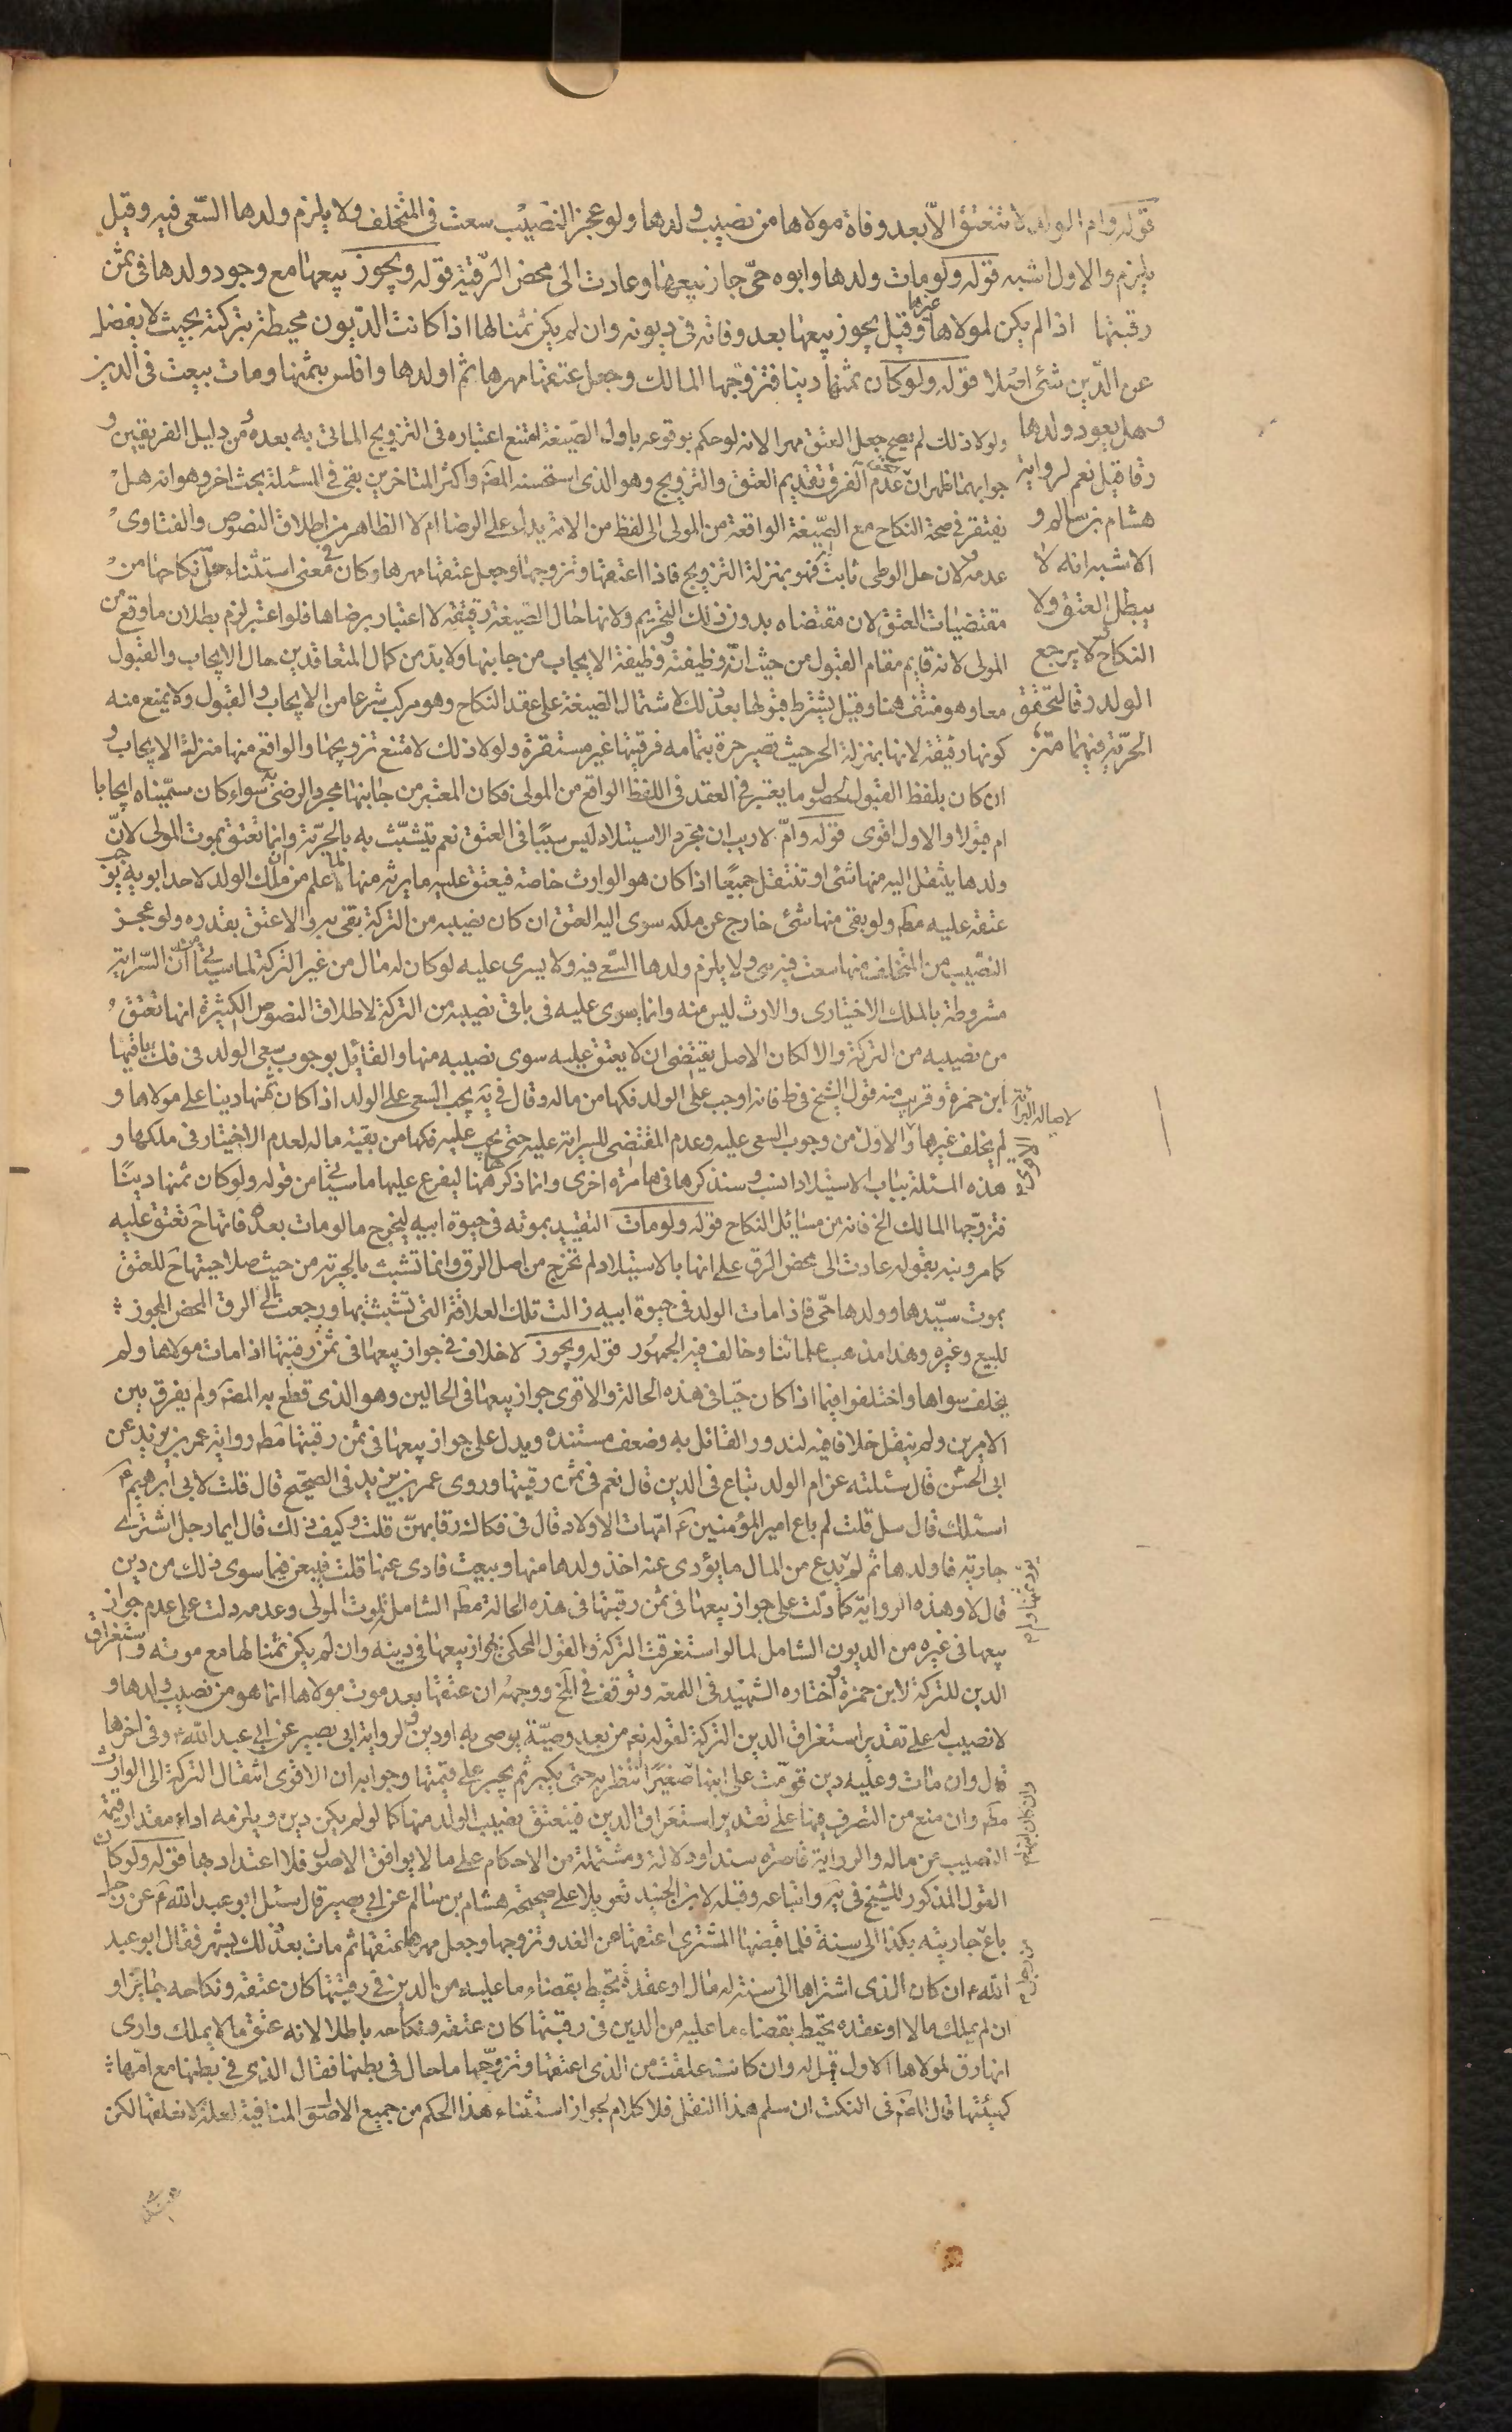 قوله وام الولد لا تنعتق الّا بعد وفاة مولاها من نصيب ولدها ولو عجز النصيب سعت في المتخلف ولا يلزم ولدها السّعى فيه وقيل
يلزم والاول اشبه قوله ولو مات ولدها وابوه حىّ جاز بيعها وعادت الى محض الرّقيّة قوله ويجوز بيعها مع وجود ولدها في ثمن
رقبتها اذا لم يكن لمولاها غيرها وقيل يجوز بيعها بعد وفاته في ديونه وان لم يكن ثمنا لها اذا كانت الدّيون محيطة بتركته بحيث لا يفضل
عن الدّين شئ اصلا قوله ولو كان ثمنها دينا فتزوّجها المالك وجعل عتقها مهرها ثم اولدها وافلس بثمنها ومات بيعت في الدين
وهل يعود ولدها
رقا قيل نعم لرواية
هشام بن سالم و
الاشبه انه لا
يبطل العتق ولا
النكاح ولا يرجع
الولد رقا لتحقق
الحرّية فيهما
ولولا ذلك لم يصح جعل العتق مهرا لانه لو حكم بوقوعه باول الصّيغة امتنع اعتباره في التزويج الماتى به بعده ومن دليل الفريقين و
جوابهما ظهر ان عدم الفرق بتقديم العتق والتزويج وهو الذى استحسنه المصَ واكثر المتاخرين بقى في المسئلة بحث اخر وهو انه هل
يفتقر في صحة النكاح مع الصّيغة الواقعة من المولى الى لفظ من الامة يدل على الرضا ام لا الظاهر من اطلاق النصوص والفتاوى
عدمه لان حل الوطى ثابت فهو بمنزلة التزويج فاذا اعتقها وتزوجها وجعل عتقها مهرها وكان في معنى استثناء حلّ نكاحها من
مقتضيات العتق لان مقتضاه بدون ذلك التحريم ولانها حال الصّيغة رقيقة لا اعتبار برضاها فلو اعتبر لزم بطلان ما وقع من
المولى لانه قايم مقام القبول من حيث انّه وظيفته ووظيفة الايجاب من جانبها ولا بد من كمال المتعاقدين حال الايجاب والقبول
معا وهو منتف هنا وقيل يشترط قبولها بعد ذلك لاشتمال الصّيغة على عقد النكاح وهو مركب شرعا من الايجاب والقبول ولا يمنع منه
كونها رقيقة لانها بمنزلة الحر حيث تصير حرة بتمامه فرقيّتها غير مستقرة ولولا ذلك لامتنع تزويجها والواقع منها منزلة الايجاب و
ان كان بلفظ القبول لحصول ما يعتبر في العقد في اللفظ الواقع من المولى فكان المعتبر من جانبها مجرد الرضى به سواء كان سمّيناه ايجابا
ام قبولا والاول اقوى قوله وامّ لا ريب ان مجرّد الاستيلاد ليس سببا في العتق نعم تتشبّث به بالحرّية وانما تعتق بموت المولى لانّ
ولدها ينتقل اليه منها شئ او تنتقل جميعًا اذا كان هو الوارث خاصة فيعتق عليه ما يرثه منها لما علم من ان ملك الولد لاحد ابويه يوجب
عتقه عليه مطَ ولو بقى منها شئ خارج عن ملكه سرى اليه العتق ان كان نصيبه من التركة يفى به والا عتق بقدره ولو عجز
النصيب من المتخلف منها سعت فيه هى ولا يلزم ولدها السّعى فيه ولا يسرى عليه لو كان له مال من غير التركة لما سيأتي من انّ السّراية
مشروطة بالملك الاختيارى والارث ليس منه وانما يسرى عليه في باقى نصيبه من التركة لاطلاق النصوص الكثيرة انها تعتق
من نصيبه من التركة والا لكان الاصل يقتضى ان لا يعتق عليه سوى نصيبه منها والقايل بوجوب سعى الولد في فك باقيها
ابن حمزة وقريب منه قول الشيخ في ط فانه اوجب على الولد فكها من ماله وقال في يَه يجب السّعى على الولد اذا كان ثمنها دينا على مولاها و
لم يخلف غيرها والاول من وجوب السعى عليه وعدم المقتضى للسراية عليه حتى يجب عليه فكها من بقية ماله لعدم الاختيار في ملكها و
لاصالة البراءة
هذه المسئلة بباب الاستيلاد انسب وسنذكرها فيها مرّة اخرى وانما ذكرها هنا ليفرع عليها ما سيأتي من قوله ولو كان ثمنها دينًا
فتزوّجها المالك الخ فانه من مسائل النكاح قوله ولو مات التقييد بموته في حيوة ابيه ليخرج ما لو مات بعده فانها حَ تعتق عليه
كما مر ونبه بقوله عادت الى محض الرق على انها بالاستيلاد لم تخرج من اصل الرق وانما تشبث بالحرية من حيث صلاحيتها حَ للعتق
بموت سيّدها وولدها حىّ فاذا مات الولد في حيوة ابيه زالت تلك العلاقة التى تتشبث بها ورجعت الى الرق المحض المجوز
للبيع وغيره وهذا مذهب علمائنا وخالف فيه الجمهور قوله ويجوز لا خلاف في جواز بيعها في ثمن رقبتها اذا مات مولاها ولم
يخلف سواها واختلفوا فيما اذا كان حيّا في هذه الحالة والاقوى جواز بيعها في الحالين وهو الذى قطع به المصَ ولم يفرق بين
الامرين ولم ينقل خلافا فيه لندور القائل به وضعف مستنده ويدل على جواز بيعها في ثمن رقبتها مطَ رواية عمر بن يزيد عن
ابى الحسن قال سئلته عن ام الولد تباع في الدين قال نعم في ثمن رقبتها وروى عمر بن يزيد في الصحيح قال قلت لابى ابرهيم عَ
اسئلك قال سل قلت لم باع امير المؤمنين عَ امّهات الاولاد قال في فكاك رقابهنّ قلت وكيف ذلك قال ايما رجل اشترى
جارية فاولدها ثم لم يدع من المال ما يؤدى عنه اخذ ولدها منها وبيعت فادى عنها قلت فيبعن فيما سوى ذلك من دين
قال لا وهذه الرواية كما دلّت على جواز بيعها في ثمن رقبتها في هذه الحالة مطَ الشامل لموت المولى وعدمه دلت على عدم جواز
بيعها في غيره من الديون الشامل لما لو استغرقت التركة والقول المحكى بجواز بيعها في دينه وان لم يكن ثمنا لها مع موته واستغراق
الدين للتركة لابن حمزة واختاره الشهيد في اللمعة وتوقف في الخ ووجهه ان عتقها بعد موت مولاها انما هو من نصيب ولدها و
لا نصيب له على تقدير استغراق الدين التركة لقوله تع من بعد وصيّة يوصى به او دين ولرواية ابى بصير عن ابى عبد الله ع وفى اخرها
قال وان مات وعليه دين قوّمت على ابنها صغيرًا انتظر به حتى يكبر ثم يجبر على قيمتها وجوابه ان الاقوى انتقال التركة الى الوارث
وان كان ابنها
مطَ وان منع من التصرف فيها على تقدير استغراق الدين فينعتق نصيب الولد منها كما لو لم يكن دين ويلزمه اداء مقدار قيمة
النصيب من ماله والرواية قاصرة سندا ودلالة ومشتملة من الاحكام على ما لا يوافق الاصول فلا اعتداد بها قوله ولو كان
القول المذكور للشيخ في يَه واتباعه وقبله لابن الجنيد تعويلا على صحيحة هشام بن سالم عن ابى بصير قال سئل ابو عبد الله عَ عن رجل
باع جاريته بكذا الى سنة فلما قبضها المشترى اعتقها من الغد وتزوجها وجعل مهرها عتقها ثم مات بعد ذلك بشهر فقال ابو عبد
الله ع ان كان الذى اشتراها الى سنة له مال او عقدة تحيط بقضاء ما عليه من الدين في رقبتها كان عتقه ونكاحه جايزا و
ان لم يملك مالا او عقده يحيط بقضاء ما عليه من الدين في رقبتها كان عتقه ونكاحه باطلا لانه عتق ما لا يملك وارى
انها رق لمولاها الاول قيل له وان كانت علقت من الذى اعتقها وتزوّجها ما حال في بطنها فقال الذى في بطنها مع امّها
كهيئتها قال المصَ في النكت ان سلم هذا النقل فلا كلام لجواز استثناء هذا الحكم من جميع الاصول المنافية لعلة لا نعلقها لكن